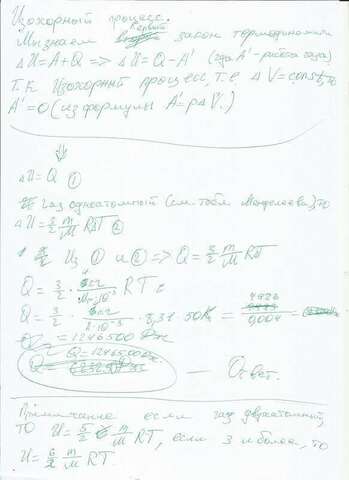 Изохорный процесс.
Мы знаем первый закон термодинамики
ΔU=A+Q => ΔU=Q-A' (где A' - работа газа)
Т.К Изохорный процесс, т.е ΔV=const, то
A'=0 (из формулы A'=pΔV.)
⇓
ΔU=Q ①
газ одноатомный (см. табл Менделеева), то
ΔU=3/2 m/M RΔT ②
Из ① и ② => Q=3/2 m/M RΔT
Q=3/2 · RT =
Q=3/2 · · 8,31·50К =
=1246500 Дж
Q=1246500 Дж. — Ответ.
Примечание если газ двухатомный,
то U=5/2 m/M RT, если 3 и более, то
U=6/2 m/M RT.